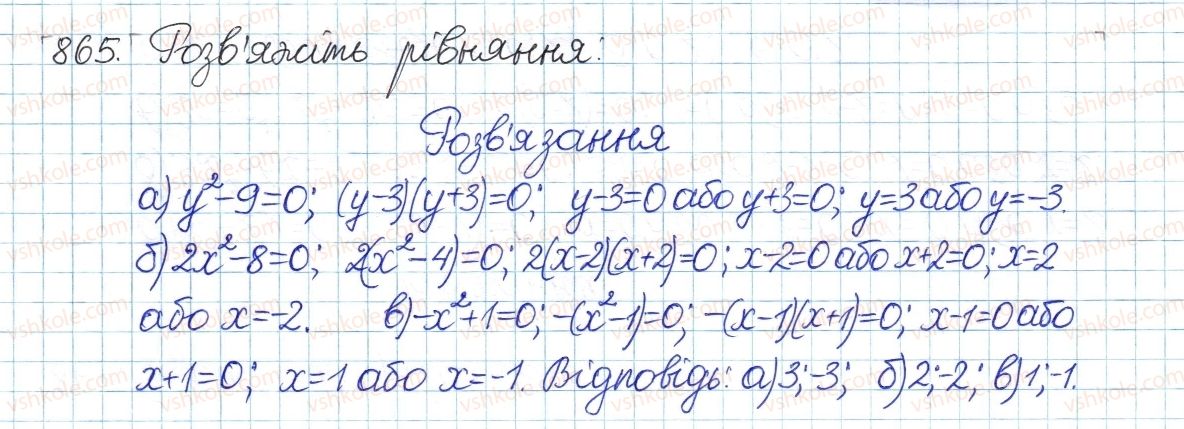 865. Розв'яжіть рівняння:
Розв'язання
а) y²-9=0; (y-3)(y+3)=0; y-3=0 або y+3=0; y=3 або y=-3.
б) 2x²-8=0; 2(x²-4)=0; 2(x-2)(x+2)=0; x-2=0 або x+2=0; x=2
або x=-2. в) -x²+1=0; -(x²-1)=0; -(x-1)(x+1)=0; x-1=0 або
x+1=0; x=1 або x=-1. Відповідь: а) 3;-3; б) 2;-2; в) 1;-1.